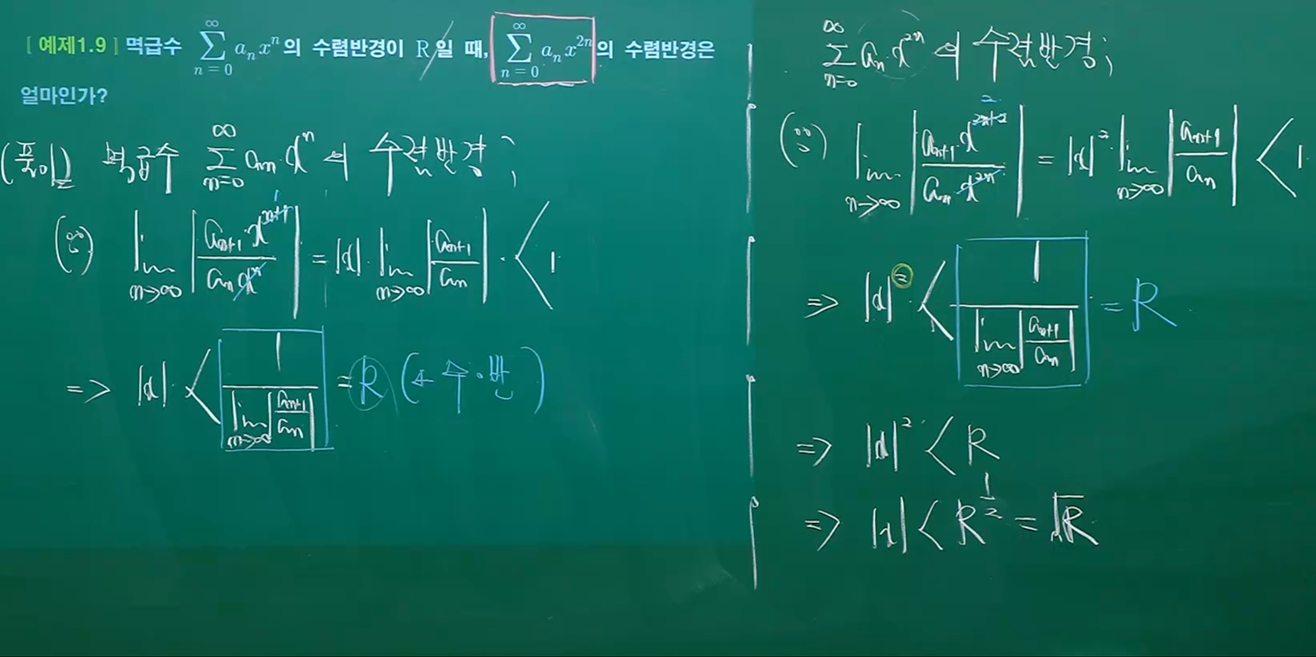 [ 예제1.9 ] 멱급수 \sum_{n=0}^{\infty} a_n x^n 의 수렴반경이 R일 때, \sum_{n=0}^{\infty} a_n x^{2n} 의 수렴반경은
얼마인가?
(풀이) 멱급수 \sum_{n=0}^{\infty} a_n x^n 의 수렴반경 ;
(∵) \lim_{n→∞} |\frac{a_{n+1} x^{n+1}}{a_n x^n}| = |x| \cdot \lim_{n→∞} |\frac{a_{n+1}}{a_n}| < 1
1
=> |x| < \frac{1}{\lim_{n→∞} |\frac{a_{n+1}}{a_n}|} = R (← 수.반)
\sum_{n=0}^{\infty} a_n x^{2n} 의 수렴반경 ;
(∵) \lim_{n→∞} |\frac{a_{n+1} x^{2n+2}}{a_n x^{2n}}| = |x|^2 \lim_{n→∞} |\frac{a_{n+1}}{a_n}| < 1
2
=> |x|^2 < \frac{1}{\lim_{n→∞} |\frac{a_{n+1}}{a_n}|} = R
=> |x|^2 < R
=> |x| < R^{\frac{1}{2}} = \sqrt{R}